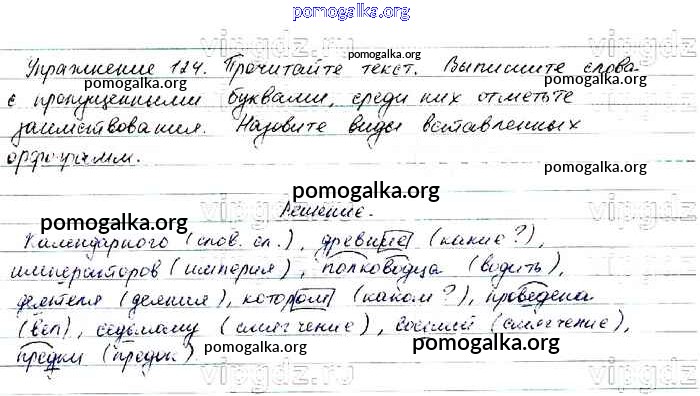 pomogalka.org
Упражнение 124. Прочитайте текст. Выпишите слова
pomogalka.org pomogalka.org
с пропущенными буквами, среди них отметьте
заимствования. Назовите виды вставленных
орфограмм.
pomogalka.org
pomogalka.org
Решение.
Календарного (слов. сл.), древние (какие?),
императоров (империя), полководца (водить),
деятеля (деяния), котором (каком?), проведена
(вёл), седьмому (смягчение), восьмой (смягчение),
предки (предок)
pomogalka.org pomogalka.org
vipgdz.ru
vipgdz.ru